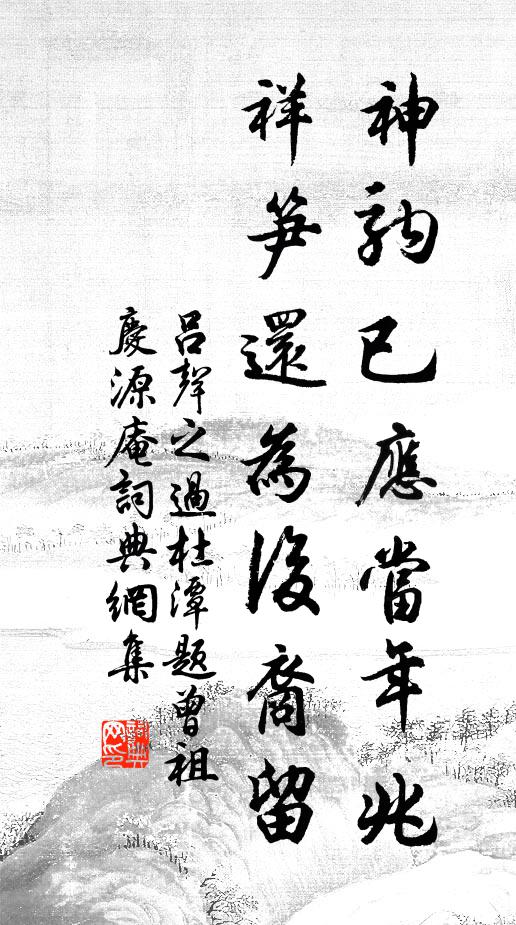 神鞠已應當年兆
祥笋還為後裔留
呂聲之過杜潭題曾祖
慶源庵詞典網集